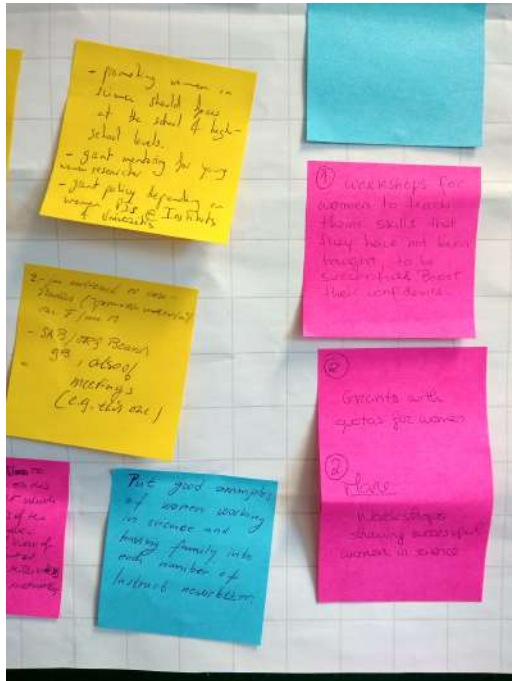 - promoting women in
science should focus
at the school & high-
school levels.
- grant mentoring for young
women researcher
- grant policy depending on
women PIs @ Institute
& Universities
① Workshops for
women to teach
them skills that
they have not been
taught, to be
successful & Boost
their confidence.
- SAB/ORG Board
GB, also
meetings
(e.g. this one)
②
Grants with
quotas for women
②
More
Workshops
showing successful
women in science
Put good examples
of women working
in science and
having family into
each number of
Instruct newsletter